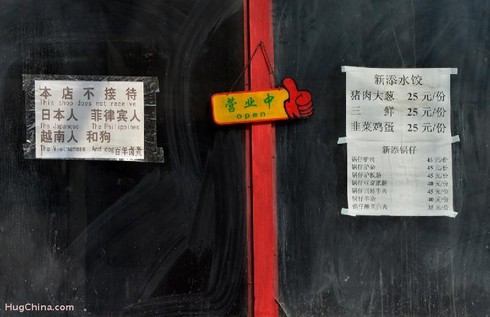 本店不接待
This shop does not receive
日本人 菲律宾人
The Japanese The Philippines
越南人 和狗
The Vietnamese And dog 百年卤煮
营业中
open
新添水饺
猪肉大葱 25 元/份
三 鲜 25 元/份
韭菜鸡蛋 25 元/份
新添锅仔
45 元/份
45 元/份
45 元/份
40 元/份
45 元/份
40 元/份
35 元/份
HugChina.com